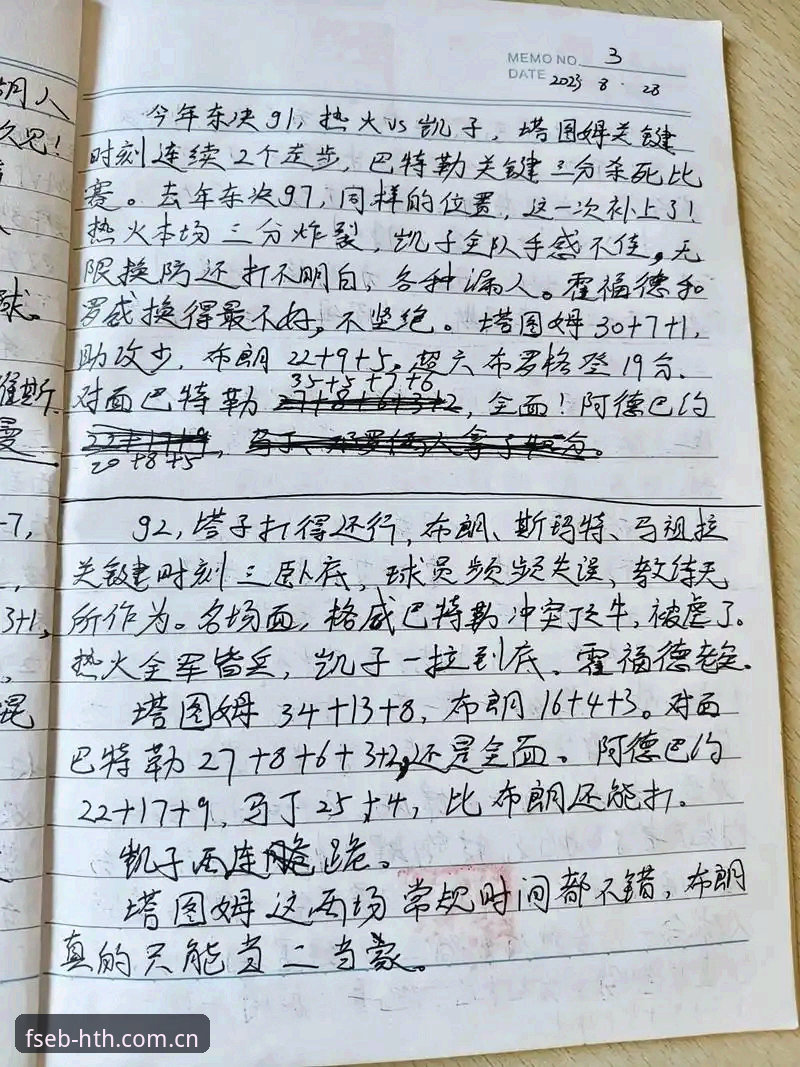 MEMO NO. 3
DATE 2023 8 · 28
今年东决g1,热火vs凯子,塔图姆关键
时刻连续2个走步,巴特勒关键三分杀死比
赛。去年东决g7,同样的位置,这一次补上了!
热火本场三分炸裂,凯子全队手感不佳,无
限换防还打不明白,各种漏人。霍福德和
罗威换得最不好,不坚绝。塔图姆30+7+1,
助攻少,布朗22+9+5,超六布罗格登19分.
35+5+7+6
对面巴特勒27+8+6+3+2,全面!阿德巴约
22+17+9,
20+8+5
92,塔子打得还行,布朗、斯玛特、马祖拉
关键时刻三卧底,球员频频失误,教练无
所作为。名场面,格威巴特勒冲突顶牛,被虐了。
热火全军皆兵,凯子一拉到底、霍福德
塔图姆34+13+8,布朗16+4+3。对面
巴特勒27+8+6+3+2,还是全面。阿德巴约
22+17+9,马丁25+4,比布朗还能打.
凯子两连跪。
塔图姆这两场常规时间都不错,布朗
真的只能当二当家。
胡人
次见!
球。
维斯.
曼
-7,
3+1,
混
fseb-hth.com.cn